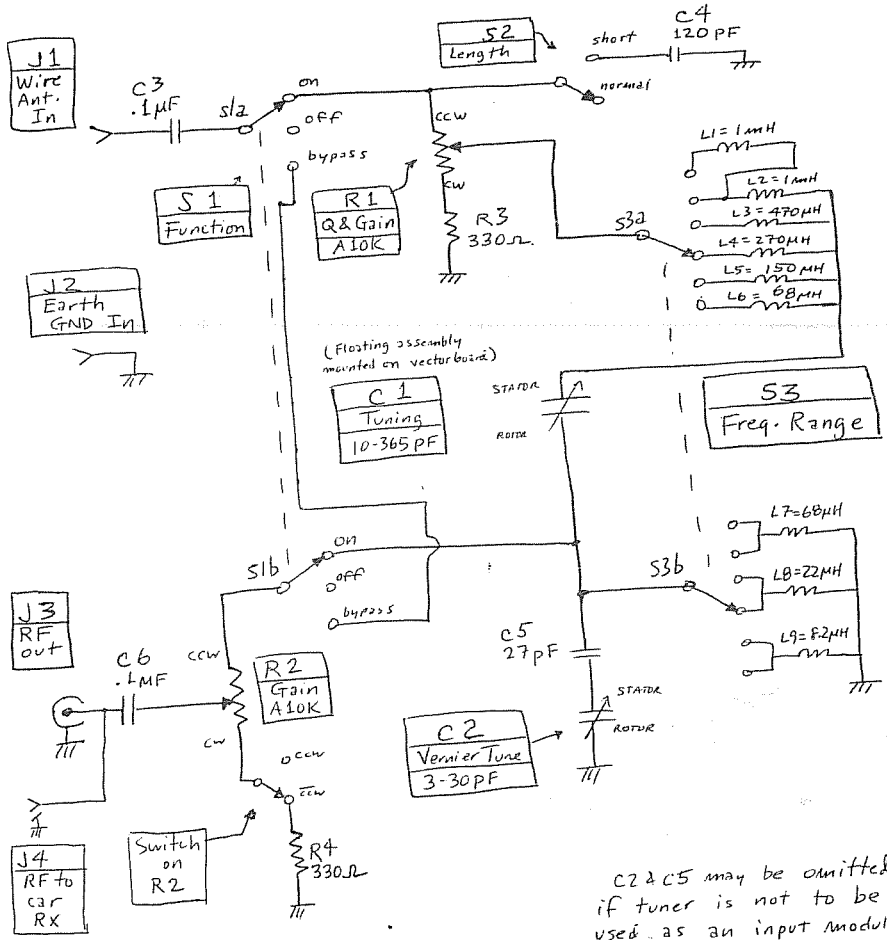 J1
Wire
Ant.
In
C3
.1µF
S1a
on
off
bypass
S1
Function
S2
Length
short
C4
120 PF
normal
CCW
CW
R1
Q&Gain
A10K
R3
330Ω
S3a
L1=1mH
L2=1mH
L3=470µH
L4=270µH
L5=150µH
L6=68µH
J2
Earth
GND In
(Floating assembly
mounted on vectorboard)
C1
Tuning
10-365pF
STATOR
ROTOR
S3
Freq. Range
S1b
on
off
bypass
S3b
L7=68µH
L8=22µH
L9=8.2µH
C5
27pF
J3
RF
out
C6
.1MF
CCW
CW
R2
Gain
A10K
CCW
C̅C̅W̅
C2
Vernier Tune
3-30pF
STATOR
ROTOR
J4
RF to
car
RX
Switch
on
R2
R4
330Ω
C2 & C5 may be omitted
if tuner is not to be
used as an input modul